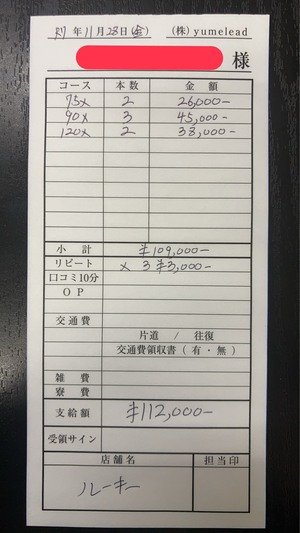 R7年11月28日(金) (株) yumelead
様
コース 本数 金額
75× 2 26,000-
90× 3 45,000-
120× 2 38,000-
小計 ¥109,000-
リピート × 3 ¥3,000-
口コミ10分
OP
交通費
片道 / 往復
交通費領収書(有・無)
雑費
寮費
支給額 ¥112,000-
受領サイン
店舗名 担当印
ルーキー